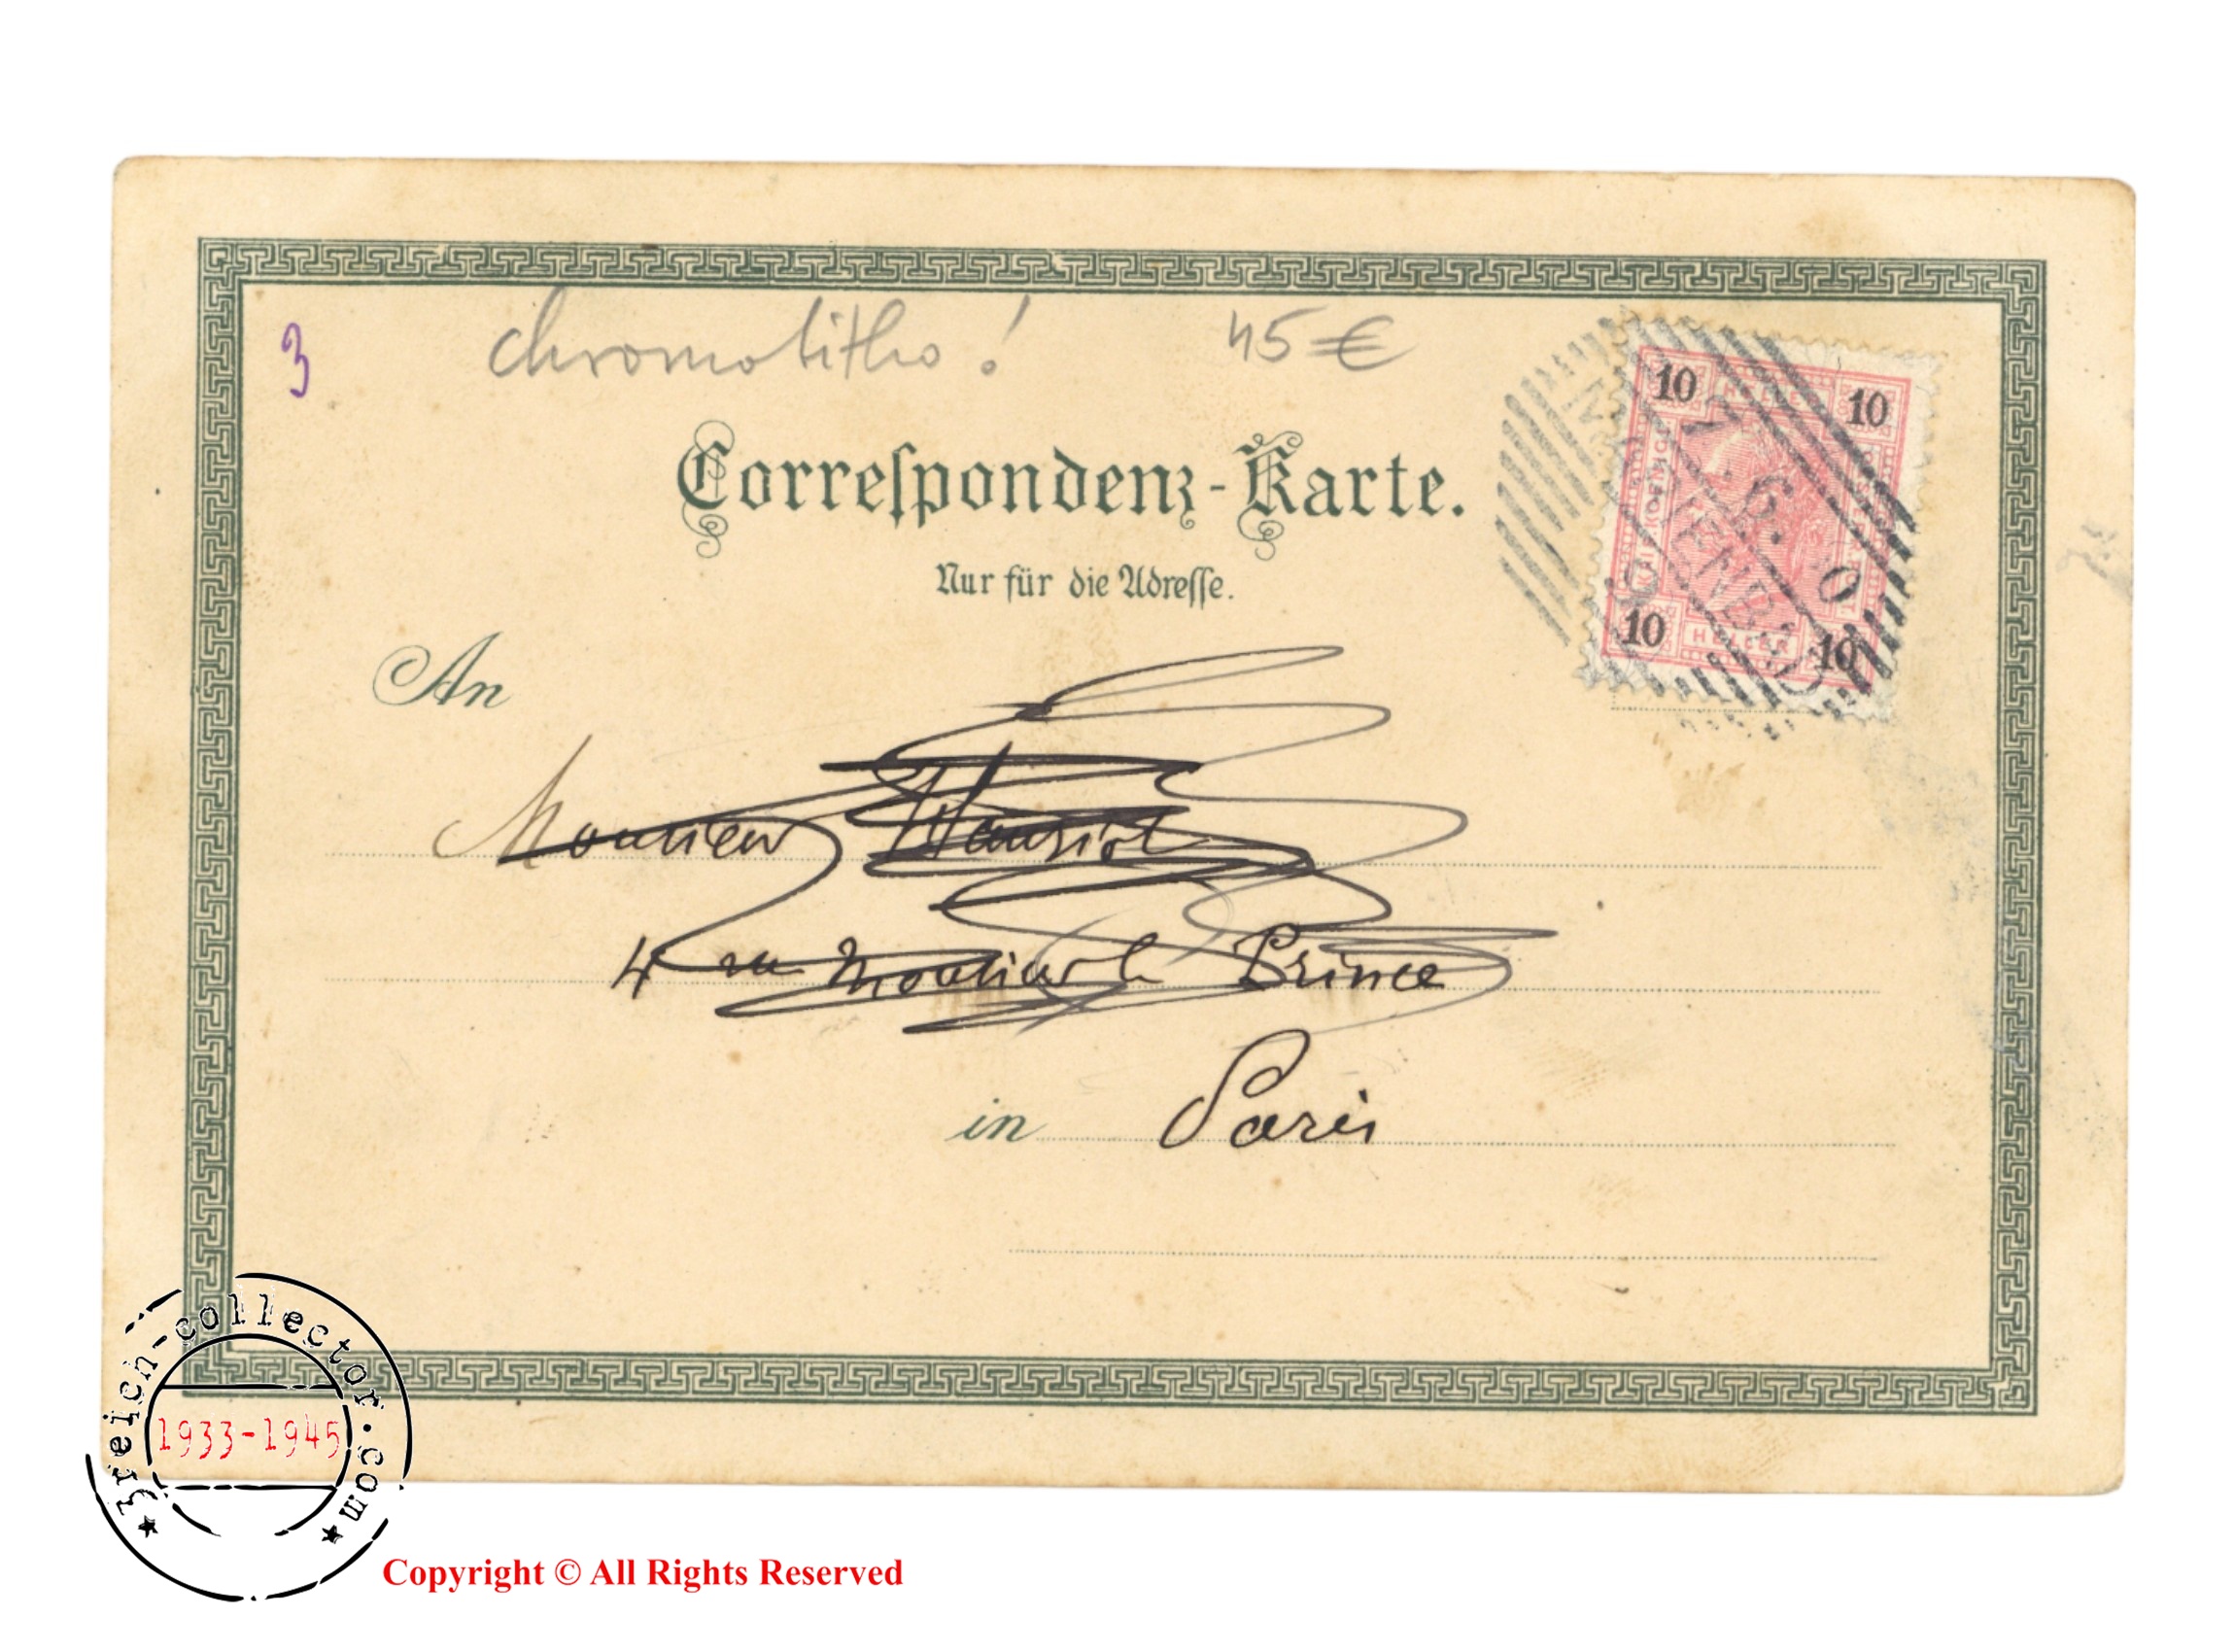 3 chromolitho! 45 €
Correſpondenz-Karte.
Nur für die Adreſſe.
10 10
HELLER
10 10
An
Monsieur
4 rue Monsieur le Prince
in Paris
3reich-collector.com
1933-1945
Copyright © All Rights Reserved